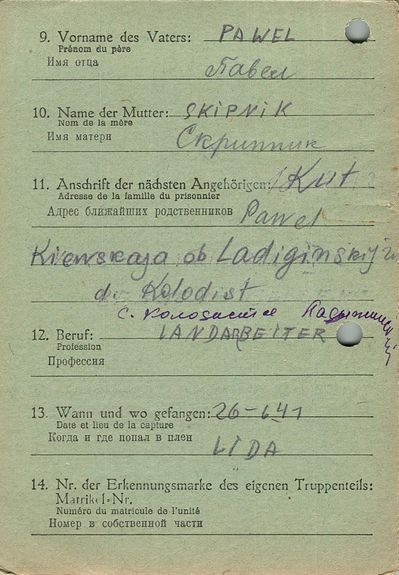 9. Vorname des Vaters: PAWEL
Prénom du père
Имя отца
Павел
10. Name der Mutter: SKIPNIK
Nom de la mère
Имя матери
Скрипник
11. Anschrift der nächsten Angehörigen: Kut
Adresse de la famille du prisonnier
Адрес ближайших родственников Pawel
Kiewskaja ob Ladiginskij
d. Kolodist
с.
12. Beruf: LANDARBEITER
Profession
Профессия
13. Wann und wo gefangen: 26-6 41
Date et lieu de la capture
Когда и где попал в плен
LIDA
14. Nr. der Erkennungsmarke des eigenen Truppenteils:
Matrikel-Nr.
Numéro du matricule de l'unité
Номер в собственной части